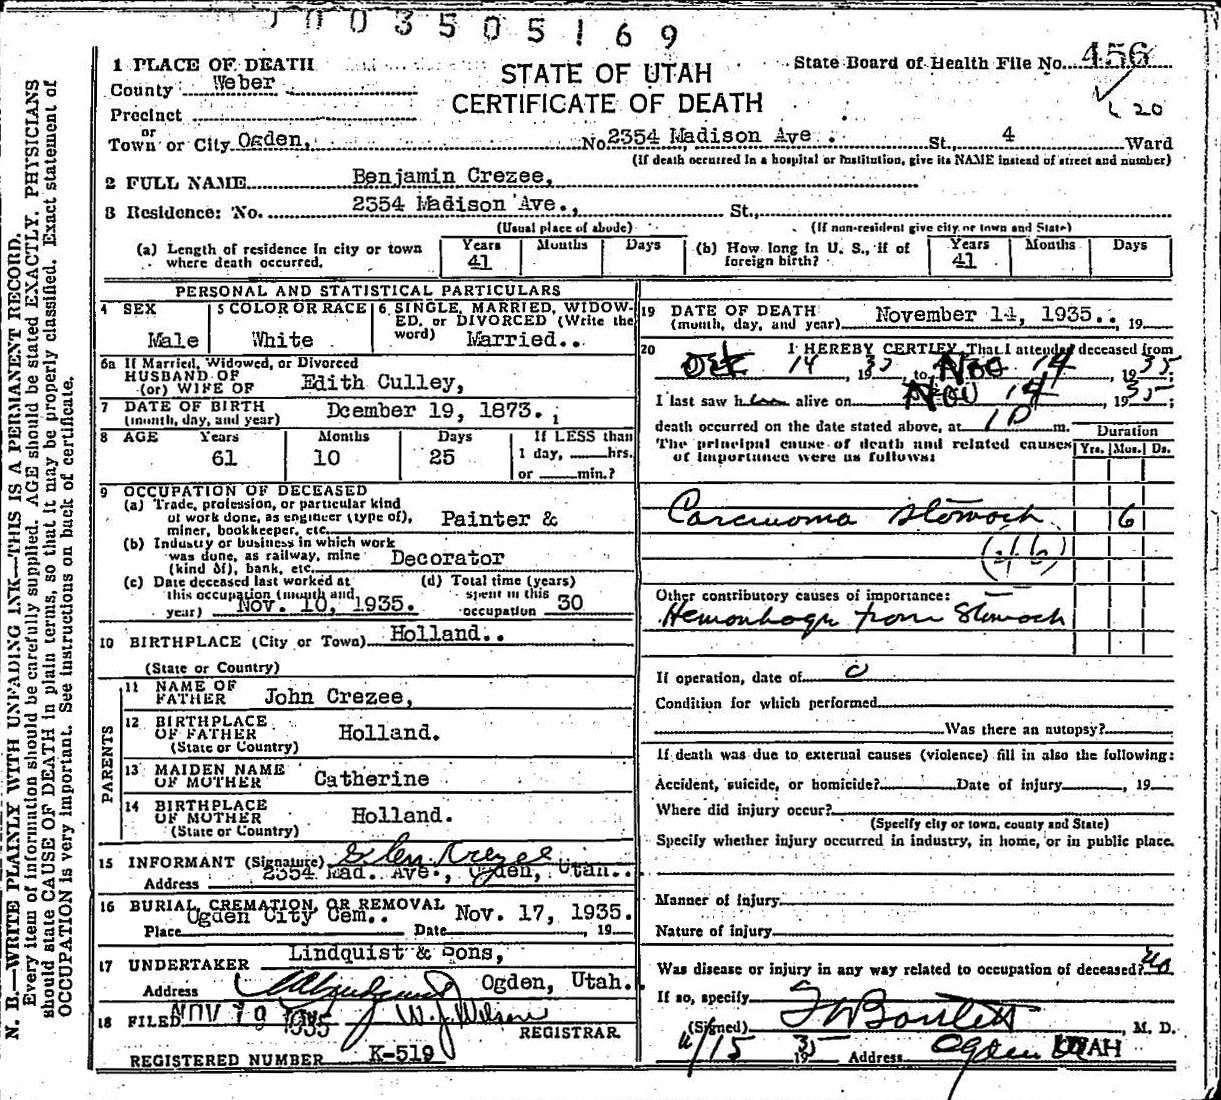 003505169
1 PLACE OF DEATH
County Weber
Precinct
or
Town or City Ogden,
STATE OF UTAH
CERTIFICATE OF DEATH
State Board of Health File No. 456
20
No. 2354 Madison Ave. St., 4 Ward
(If death occurred in a hospital or institution, give its NAME instead of street and number)
2 FULL NAME Benjamin Crezee,
3 Residence: No. 2354 Madison Ave., St.,
(Usual place of abode) (If non-resident give city or town and State)
(a) Length of residence in city or town where death occurred. Years 41 Months Days
(b) How long in U. S., if of foreign birth? Years 41 Months Days
PERSONAL AND STATISTICAL PARTICULARS
4 SEX Male
5 COLOR OR RACE White
6 SINGLE, MARRIED, WIDOWED, or DIVORCED (Write the word) Married..
6a If Married, Widowed, or Divorced
HUSBAND OF
(or) WIFE OF Edith Culley,
7 DATE OF BIRTH
(month, day, and year) Dcember 19, 1873.
8 AGE Years 61 Months 10 Days 25
If LESS than
1 day, hrs.
or min.?
9 OCCUPATION OF DECEASED
(a) Trade, profession, or particular kind
of work done, as engineer (type of),
miner, bookkeeper, etc. Painter &
(b) Industry or business in which work
was done, as railway, mine
(kind of), bank, etc. Decorator
(c) Date deceased last worked at
this occupation (month and
year) Nov. 10, 1935.
(d) Total time (years)
spent in this
occupation 30
10 BIRTHPLACE (City or Town) Holland..
(State or Country)
PARENTS
11 NAME OF
FATHER John Crezee,
12 BIRTHPLACE
OF FATHER Holland.
(State or Country)
13 MAIDEN NAME
OF MOTHER Catherine
14 BIRTHPLACE
OF MOTHER Holland.
(State or Country)
15 INFORMANT (Signature) Glen Krezee
Address 2354 Mad. Ave., Ogden, Utah..
16 BURIAL, CREMATION, OR REMOVAL
Place Ogden City Cem.. Date Nov. 17, 1935. , 19
17 UNDERTAKER Lindquist & Sons,
Address Ogden, Utah.
18 FILED NOV 19 1935 W. J. Wilson
REGISTRAR
REGISTERED NUMBER K-519
19 DATE OF DEATH
(month, day, and year) November 14, 1935.. , 19
20 I HEREBY CERTIFY, That I attended deceased from
Oct 14, 1935, to Nov 14, 1935;
I last saw him alive on Nov 14, 1935;
death occurred on the date stated above, at 1 P m.
The principal cause of death and related causes
of importance were as follows:
Duration
Yrs. Mos. Ds.
Carcinoma Stomach 6
(46)
Other contributory causes of importance:
Hemorrhage from Stomach
If operation, date of 0
Condition for which performed
Was there an autopsy?
If death was due to external causes (violence) fill in also the following:
Accident, suicide, or homicide? Date of injury , 19
Where did injury occur?
(Specify city or town, county and State)
Specify whether injury occurred in industry, in home, or in public place.
Manner of injury
Nature of injury
Was disease or injury in any way related to occupation of deceased? no
If so, specify
(Signed) , M. D.
11/15 1935 Address Ogden UTAH
N. B.—WRITE PLAINLY WITH UNFADING INK—THIS IS A PERMANENT RECORD.
Every item of information should be carefully supplied. AGE should be stated EXACTLY. PHYSICIANS
should state CAUSE OF DEATH in plain terms, so that it may be properly classified. Exact statement of
OCCUPATION is very important. See instructions on back of certificate.